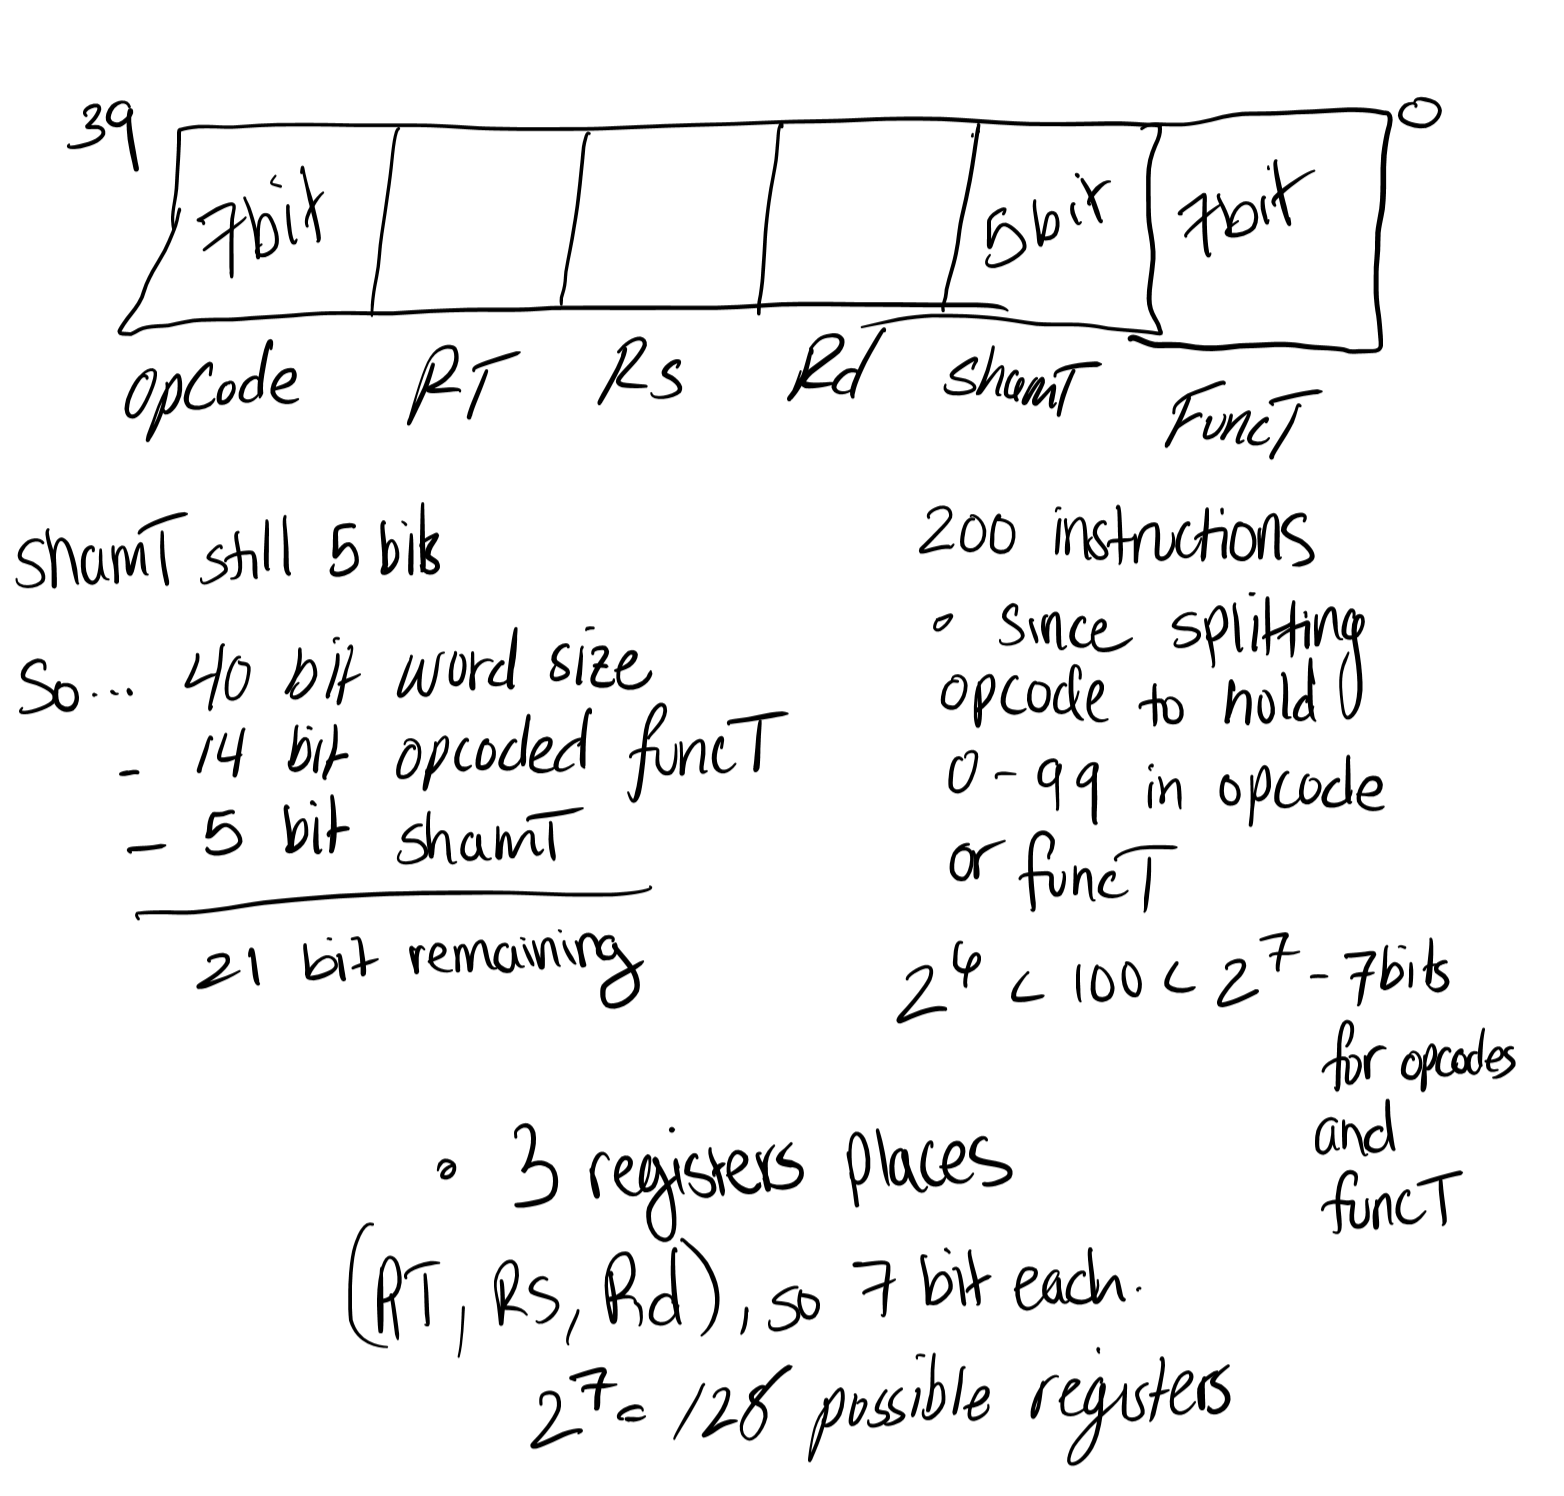 39 0
7bit 5bit 7bit
opCode RT Rs Rd shamT FuncT
shamT still 5 bits
So... 40 bit word size
- 14 bit opcoded funcT
- 5 bit shamT
21 bit remaining
200 instructions
• since splitting
opcode to hold
0-99 in opcode
or funcT
2^6 < 100 < 2^7 - 7bits
for opcodes
and
funcT
• 3 registers places
(RT, RS, Rd), so 7 bit each.
2^7 = 128 possible registers